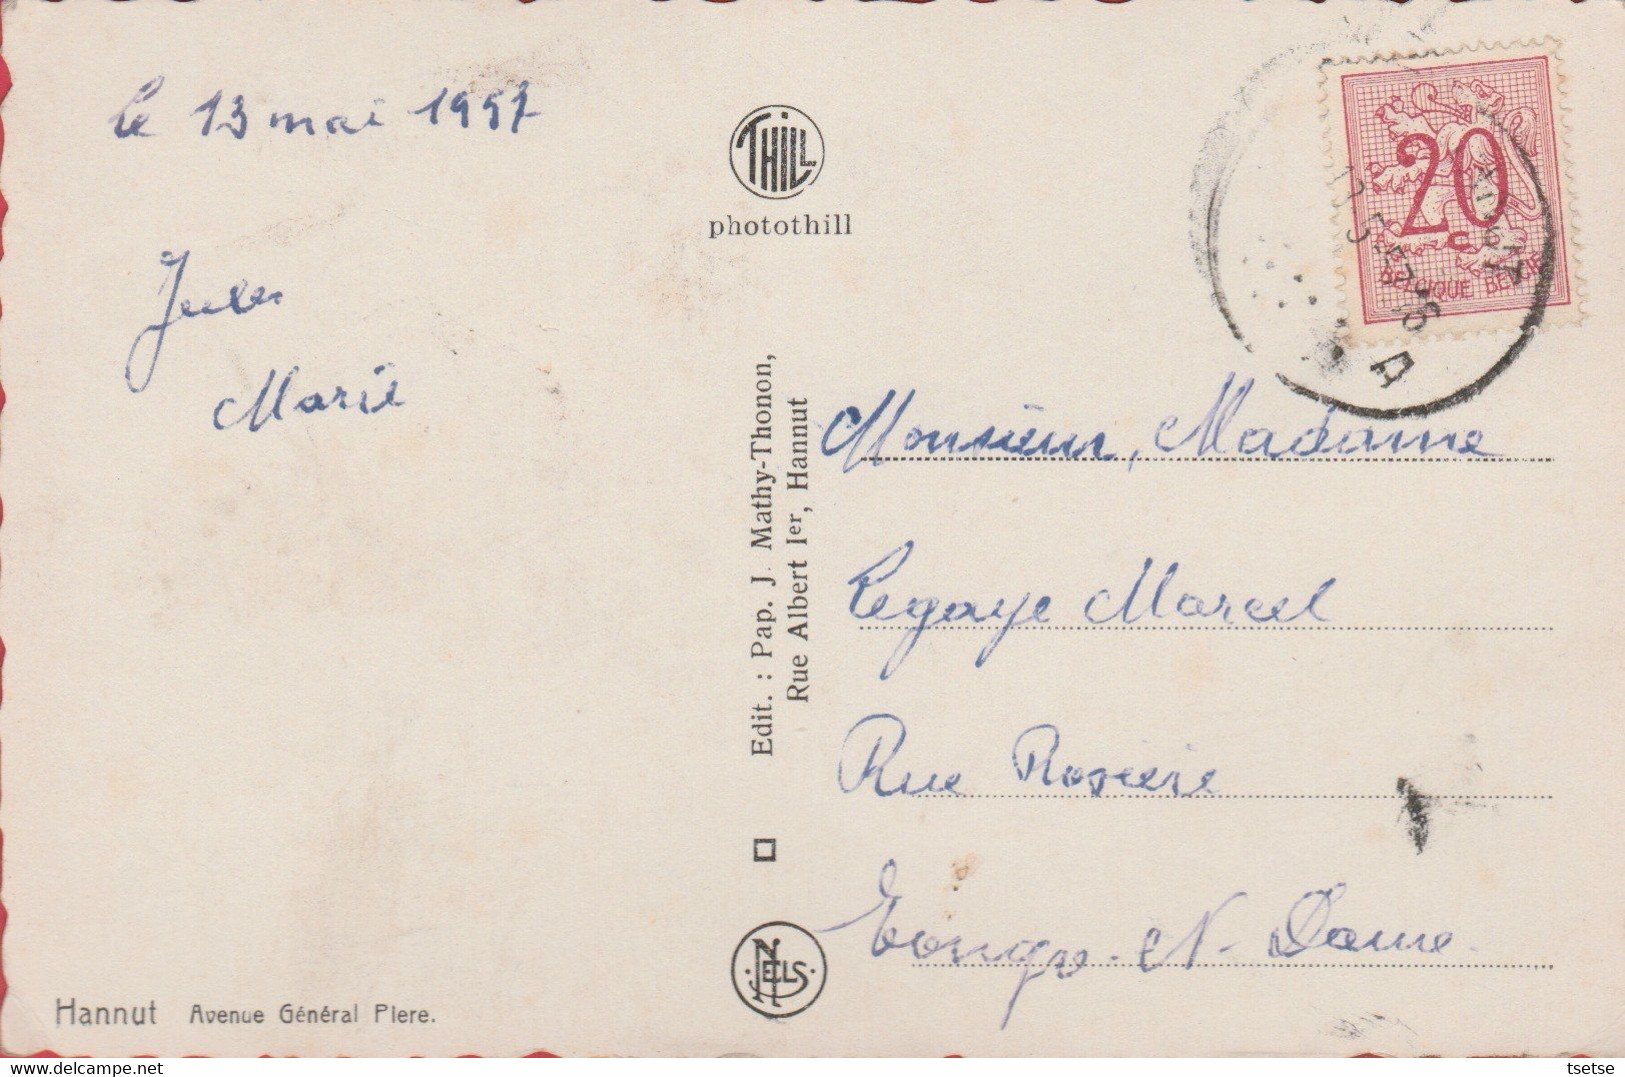 le 13 mai 1957
Jules
Marie
THILL
photothill
20
c
BELGIQUE BELGIE
A
Edit. : Pap. J. Mathy-Thonon,
Rue Albert Ier, Hannut
Monsieur, Madame
Legaye Marcel
Rue Rosière
Longp. N. Dame.
NELS
Hannut Avenue Général Piere.
delcampe.net
tsetse